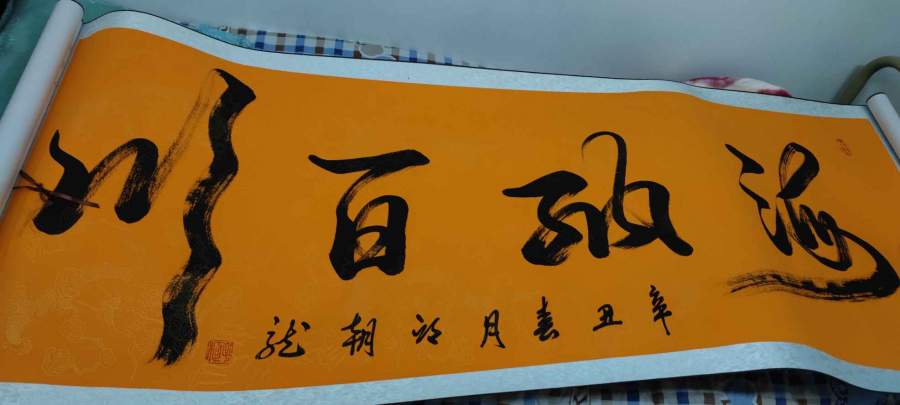 海纳百川
辛丑春月朝龙